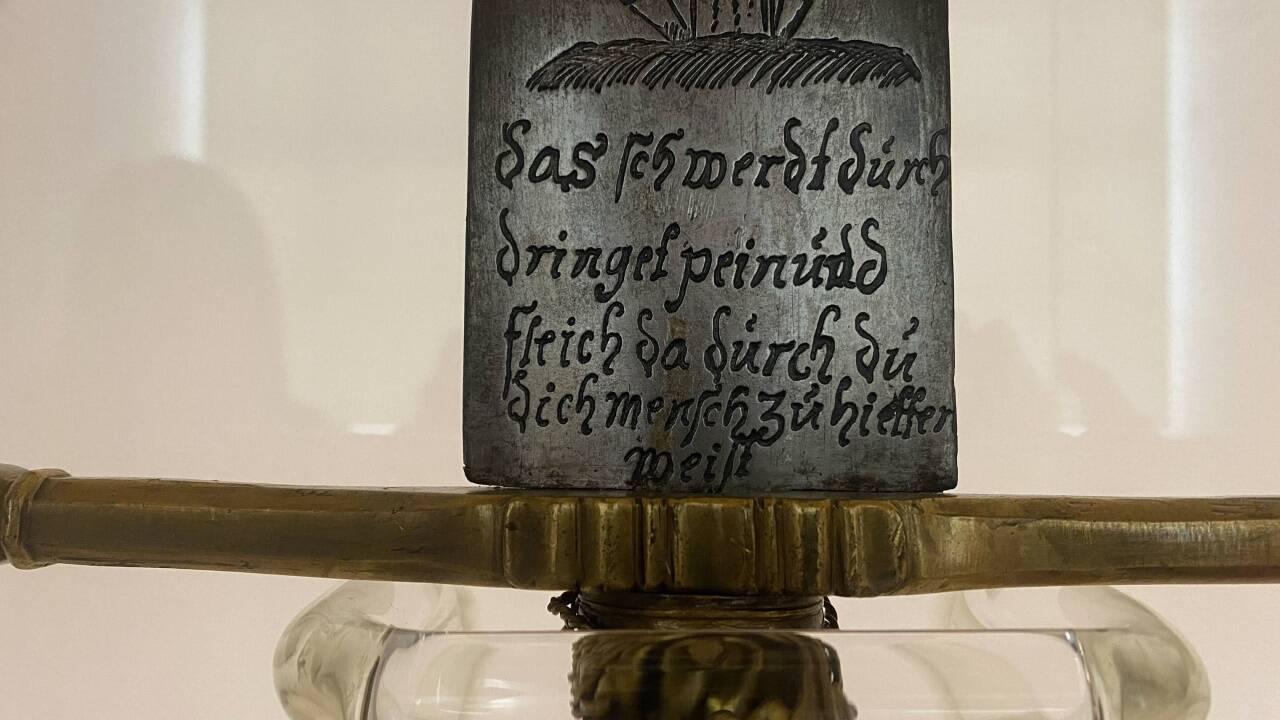 das schwerdt dúrch
dringet pein únd
fleich da dúrch dú
dich mensch zú hieffer
weist